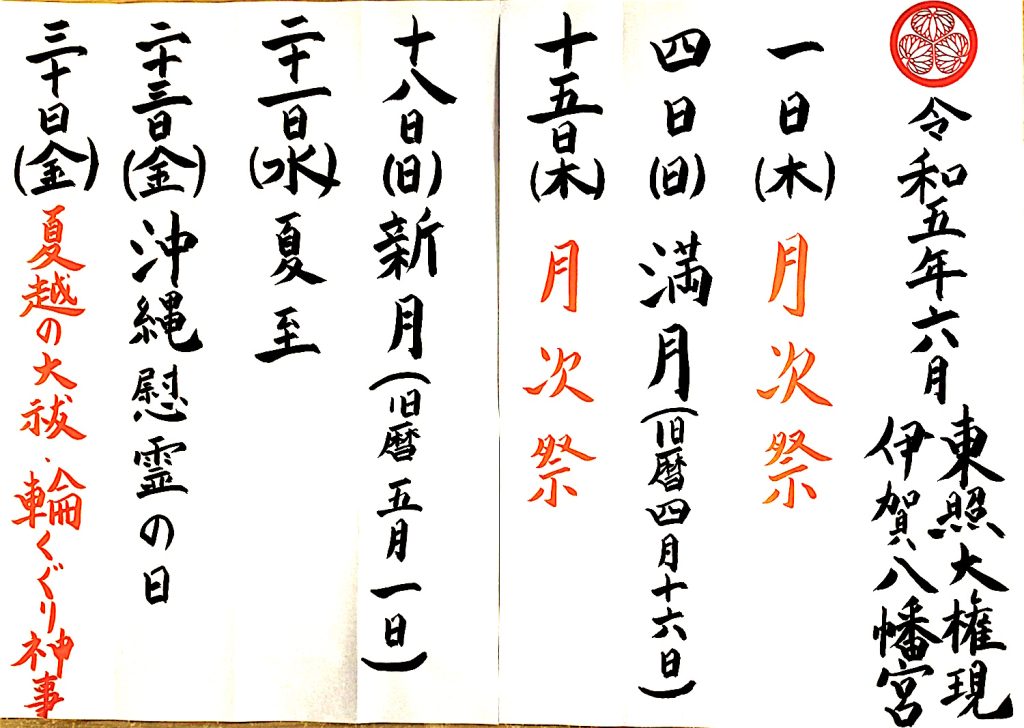 令和五年六月
東照大権現
伊賀八幡宮
一日(木) 月次祭
四日(日) 満月(旧暦四月十六日)
十五日(木) 月次祭
十八日(日) 新月(旧暦五月一日)
二十一日(水) 夏至
二十三日(金) 沖縄慰霊の日
三十日(金) 夏越の大祓・輪くぐり神事